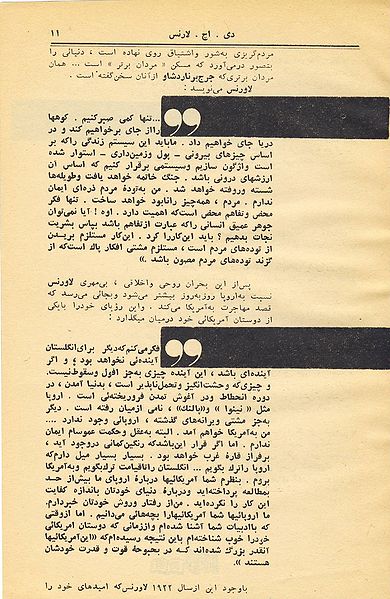 دی . اچ . لارنس
۱۱
مردم‌گریزی به‌شور واشتیاق روی نهاده است ، دنیائی را
بتصور درمی‌آورد که مسکن « مردان برتر » است ... همان
مردان برتری‌که جرج‌برناردشاو ازآنان سخن‌گفته است .
لاورنس می‌نویسد :
...تنها کمی صبرکنیم . کوهها
رااز جای برخواهیم کند و در
دریا جای خواهیم داد . مابباید این سیستم زندگی راکه بر
اساس چیزهای بیرونی ــ پول وزمین‌داری ــ استوار شده
است واژگون سازیم وسیستمی برقرار کنیم که اساس آن
ارزشهای درونی باشد . جنگ خاتمه خواهد یافت وطویله‌ها
شسته وروفته خواهد شد . من به‌تودهٔ مردم ذره‌ای ایمان
ندارم . مردم ، همه‌چیز رانابود خواهد ساخت . تنها فکر
محض وتفاهم محض است‌که اهمیت دارد . اوه ! آیا نمی‌توان
جوهر عمیق انسانی راکه عبارت ازتفاهم باشد بپاس بشریت
نجات بدهیم ؟ باید این‌کاررا کرد . این‌کار مستلزم بریدن
از توده‌های مردم است ، مستلزم مشتی افکار پاك است‌که از
گزند توده‌های مردم مصون باشد .»
پس‌از این بحران روحی واخلاقی ، بی‌مهری لاورنس
نسبت به‌اروپا روزبه‌روز بیشتر می‌شود وبجائی می‌رسد که
قصد مهاجرت به‌آمریکا می‌کند . واین رؤیای خودرا بایکی
از دوستان آمریکائی خود درمیان میگذارد :
فکرمی‌کنم‌که‌دیگر برای‌انگلستان
آینده‌ئی نخواهد بود ، و اگر
آینده‌ای باشد ، این آینده چیزی به‌جز افول وسقوط‌نیست.
و چیزی‌که وحشت‌انگیز وتحمل‌ناپذیر است ، بدنیا آمدن ، در
دوره انحطاط ودر آغوش تمدن فروریخته‌ئی است . اروپا
مثل « نینوا » و«بالتك» ، نامی ازمیان رفته است . دیگر
به‌جز مشتی ویرانه‌های گذشته ، اروپائی وجود ندارد ....
من به‌آمریکا خواهم آمد . البته به‌عقل وحکمت عموسام ایمان
ندارم . اما اگر قرار این‌باشدکه رنگین‌کمانی دروجود آید ،
برفراز قاره غرب خواهد بود . بسیار بسیار میل دارم‌که
اروپا راترك بگویم ... انگلستان راتاقیامت ترك‌بگویم وبه‌آمریکا
بروم . بنظرم شما آمریکائیها دربارهٔ اروپای ما بیش‌از حد
بمطالعه پرداخته‌اید ودربارهٔ دنیای خودتان باندازه کفایت
این کار را نکرده‌اید . من‌از رفتار وروش خودتان خبردارم.
ما اروپائیها شما آمریکائیهارا بچه‌هائی می‌دانیم . اما ازوقتی
که باادبیات شما آشنا شده‌ام واززمانی که دوستان آمریکائی
خودرا خوب شناخته‌ام باین نتیجه رسیده‌ام‌که «این‌آمریکائیها
آنقدر بزرگ شده‌اند کـه در بحبوحهٔ قوت و قدرت خودشان
هستند »
باوجود این ازسال ۱۹۲۲ لاورنس‌که امیدهای خود را